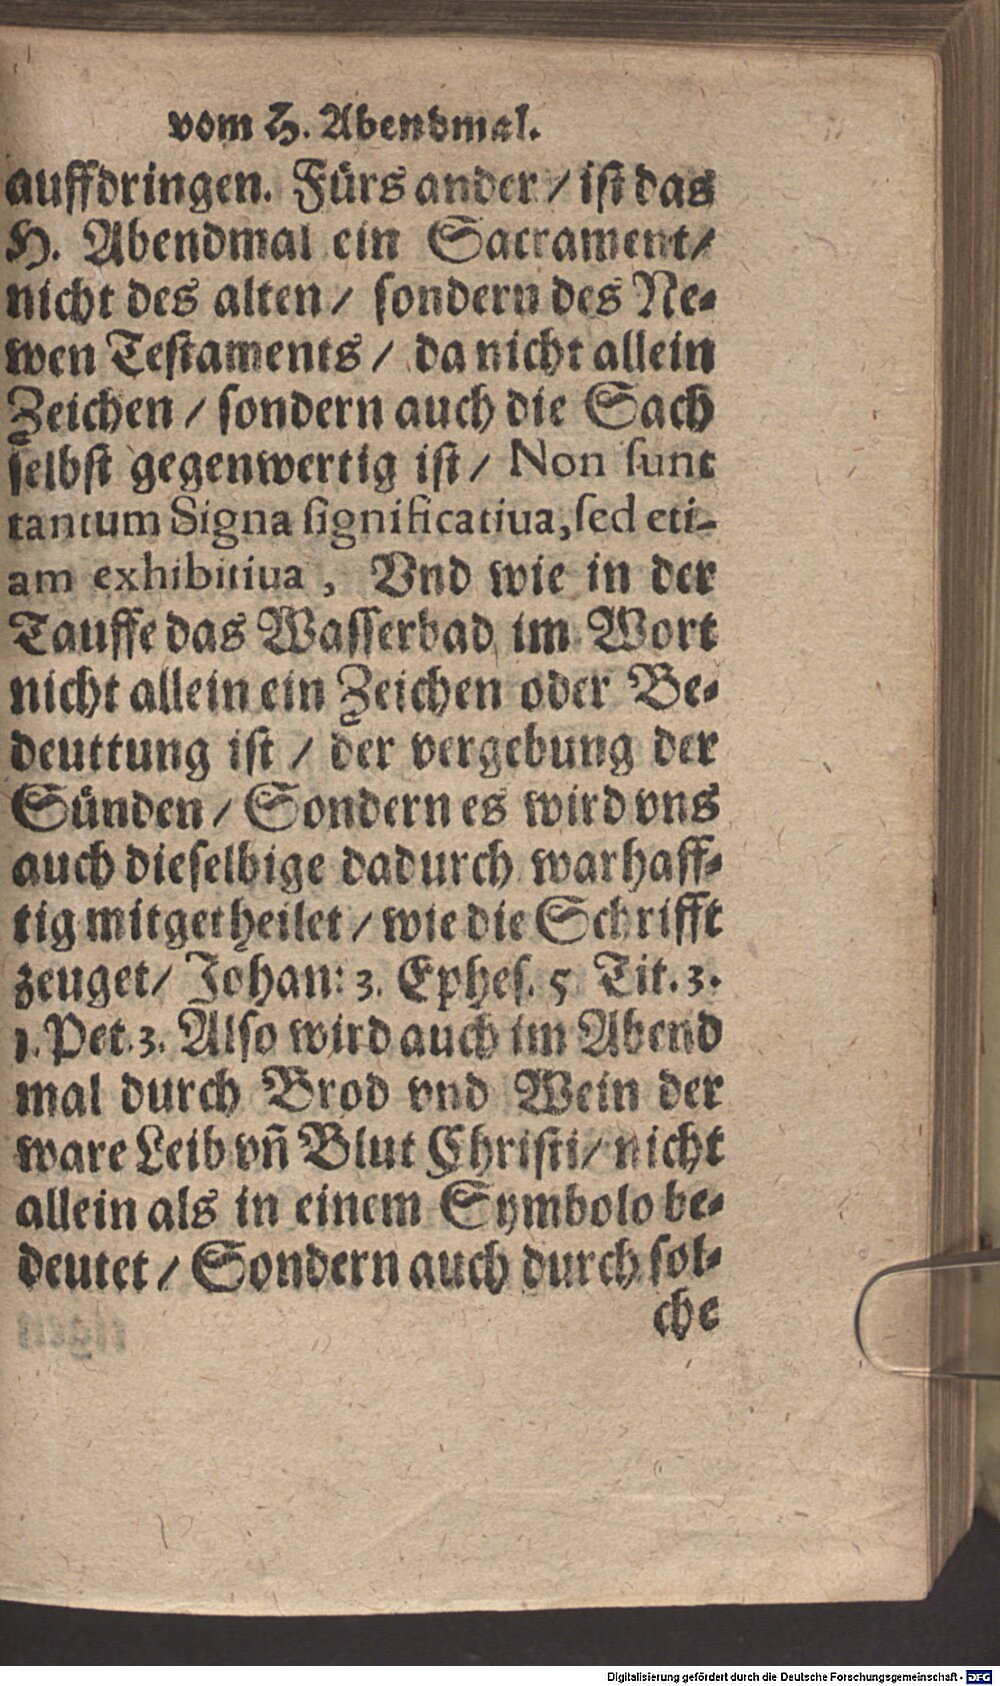 vom H. Abendmal.
auffdringen. Fürs ander / iſt das
H. Abendmal ein Sacrament/
nicht des alten / ſondern des Ne⸗
wen Teſtaments / da nicht allein
Zeichen / ſondern auch die Sach
ſelbſt gegenwertig iſt / Non ſunt
tantum Signa ſignificatiua, ſed eti-
am exhibitiua , Vnd wie in der
Tauffe das Waſſerbad im Wort
nicht allein ein Zeichen oder Be⸗
deuttung iſt / der vergebung der
Sünden / Sondern es wird vns
auch dieſelbige dadurch warhaff⸗
tig mitgetheilet / wie die Schrifft
zeuget/ Johan: 3. Epheſ. 5 Tit. 3.
1. Pet. 3. Alſo wird auch im Abend
mal durch Brod vnd Wein der
ware Leib vñ Blut Chriſti/ nicht
allein als in einem Symbolo be⸗
deutet / Sondern auch durch ſol⸗
che
Digitalisierung gefördert durch die Deutsche Forschungsgemeinschaft - DFG